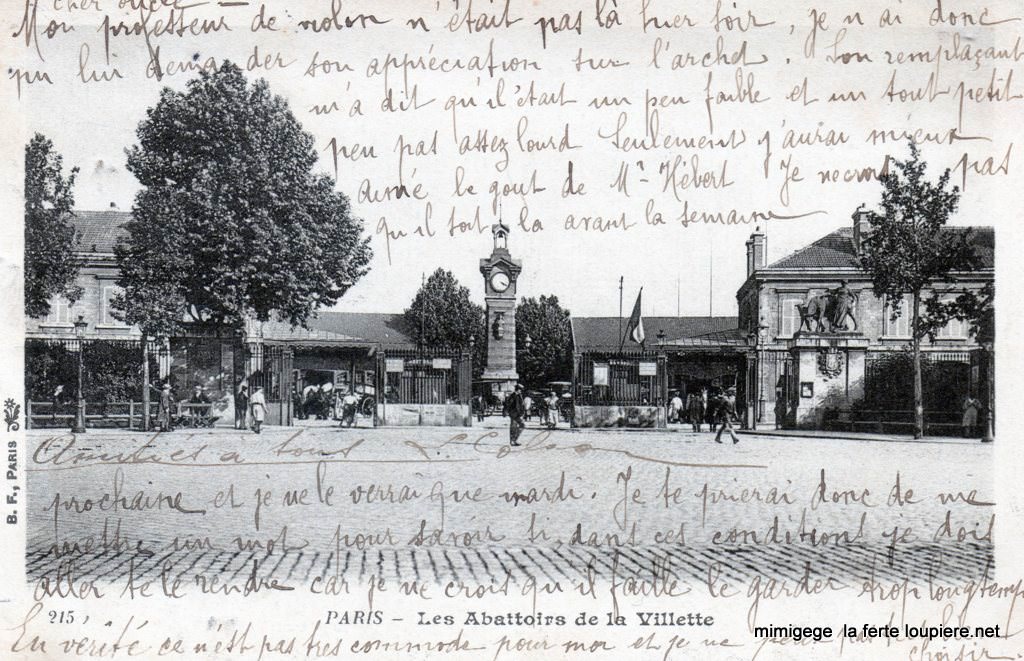 cher oncle =
Mon professeur de violon n'était pas là hier soir, je n'ai donc
pu lui demander son appréciation sur l'archet. Son remplaçant
m'a dit qu'il était un peu faible et un tout petit
peu pas assez lourd Seulement j'aurai mieux
aimé le gout de Mr Hébert Je ne crois pas
qu'il soit là avant la semaine
Amitiés à tous L.
prochaine et je ne le verrai que mardi. Je te prierai donc de me
mettre un mot pour savoir si dans ces conditions je dois
aller te le rendre car je ne crois qu'il faille le garder trop longtemps
B. F., PARIS
215 PARIS – Les Abattoirs de la Villette
En vérité ce n'est pas très commode pour moi et je ne peux pas le
choisir.
mimigege la ferte loupiere.net